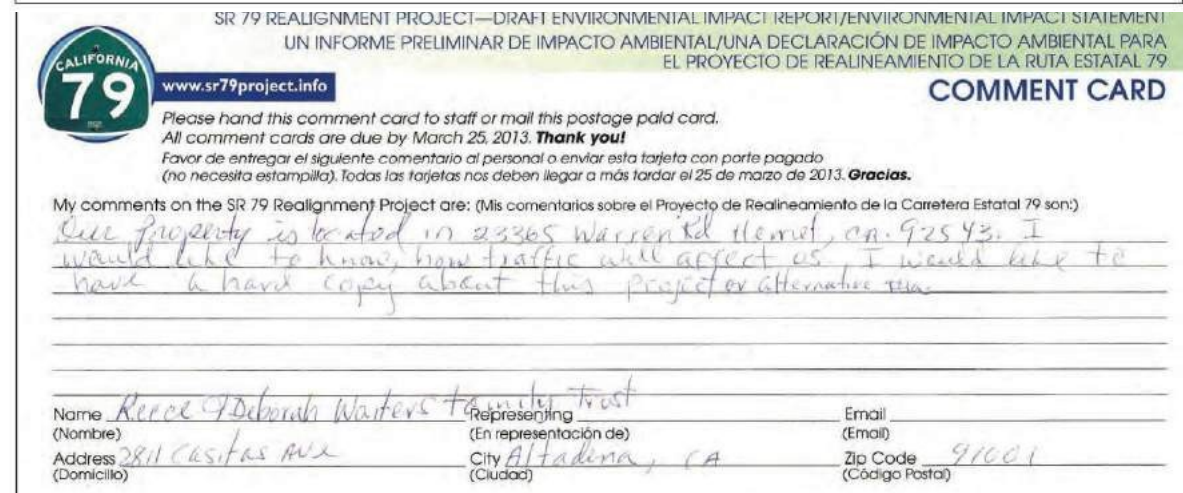 SR 79 REALIGNMENT PROJECT—DRAFT ENVIRONMENTAL IMPACT REPORT/ENVIRONMENTAL IMPACT STATEMENT
UN INFORME PRELIMINAR DE IMPACTO AMBIENTAL/UNA DECLARACIÓN DE IMPACTO AMBIENTAL PARA
EL PROYECTO DE REALINEAMIENTO DE LA RUTA ESTATAL 79
CALIFORNIA
79
www.sr79project.info
COMMENT CARD
Please hand this comment card to staff or mail this postage paid card.
All comment cards are due by March 25, 2013. Thank you!
Favor de entregar el siguiente comentario al personal o enviar esta tarjeta con porte pagado
(no necesita estampilla). Todas las tarjetas nos deben llegar a más tardar el 25 de marzo de 2013. Gracias.
My comments on the SR 79 Realignment Project are: (Mis comentarios sobre el Proyecto de Realineamiento de la Carretera Estatal 79 son:)
Our Property is located in 23365 Warren Rd Hemet, CA. 92543. I
would like to know, how traffic will affect us. I would like to
have a hard copy about this project or alternative
Name Reece & Deborah Waiters Family Trust Representing Email
(Nombre) (En representación de) (Email)
Address 2811 Casitas Ave City Altadena, CA Zip Code 91001
(Domicilio) (Ciudad) (Código Postal)